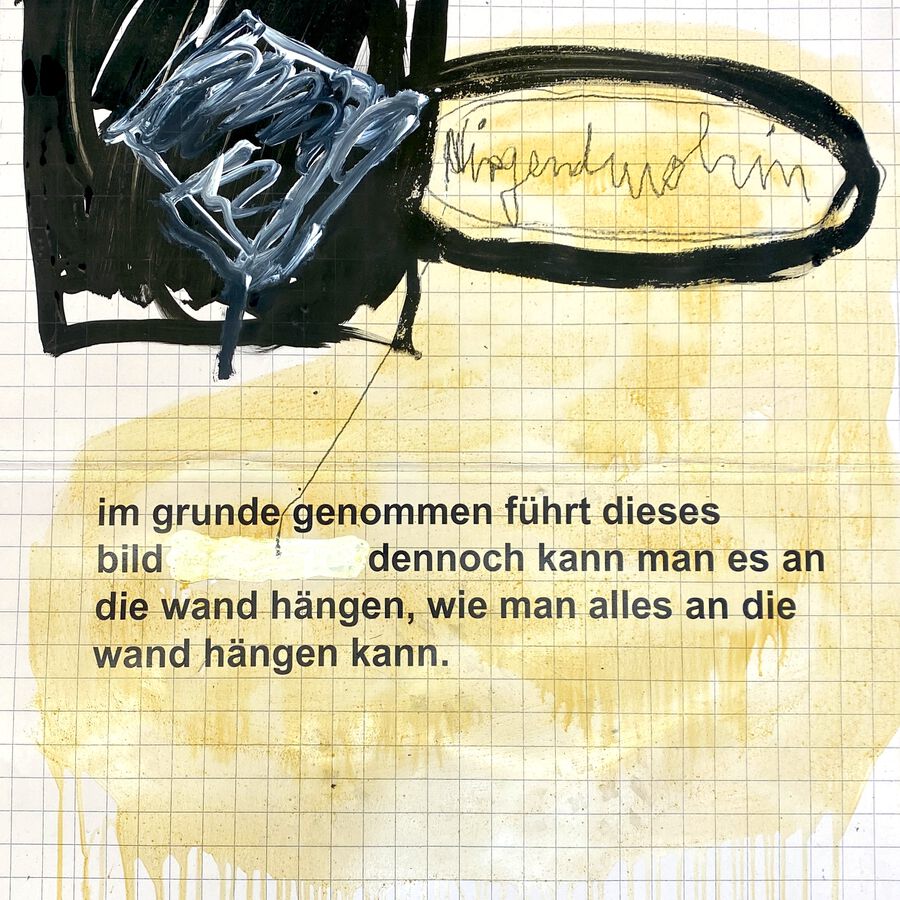 Nirgendwohin
im grunde genommen führt dieses
bild dennoch kann man es an
die wand hängen, wie man alles an die
wand hängen kann.